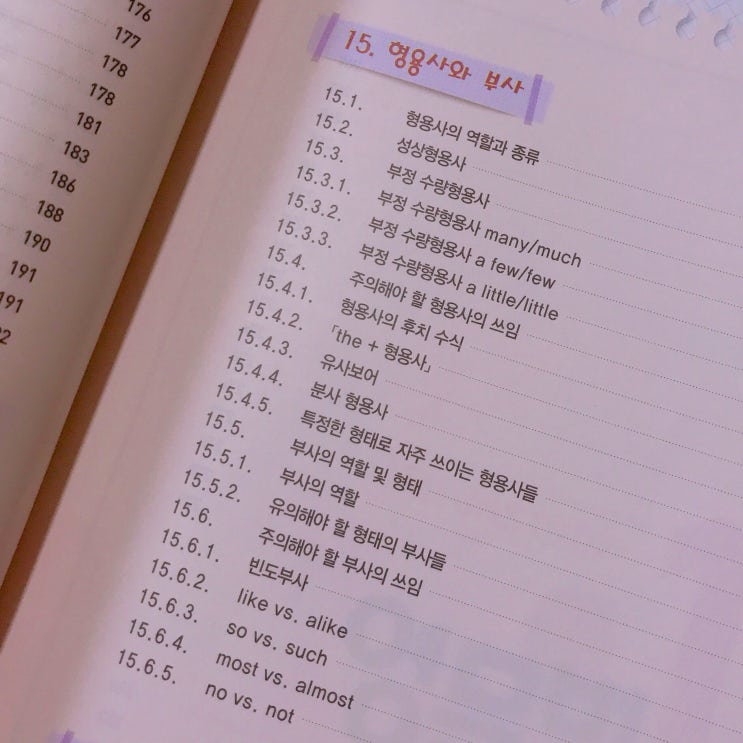 176
177
178
178
181
183
186
188
190
191
191
15. 형용사와 부사
15.1. 형용사의 역할과 종류
15.2. 성상형용사
15.3. 부정 수량형용사
15.3.1. 부정 수량형용사 many/much
15.3.2. 부정 수량형용사 a few/few
15.3.3. 부정 수량형용사 a little/little
15.4. 주의해야 할 형용사의 쓰임
15.4.1. 형용사의 후치 수식
15.4.2. 「the + 형용사」
15.4.3. 유사보어
15.4.4. 분사 형용사
15.4.5. 특정한 형태로 자주 쓰이는 형용사들
15.5. 부사의 역할 및 형태
15.5.1. 부사의 역할
15.5.2. 유의해야 할 형태의 부사들
15.6. 주의해야 할 부사의 쓰임
15.6.1. 빈도부사
15.6.2. like vs. alike
15.6.3. so vs. such
15.6.4. most vs. almost
15.6.5. no vs. not